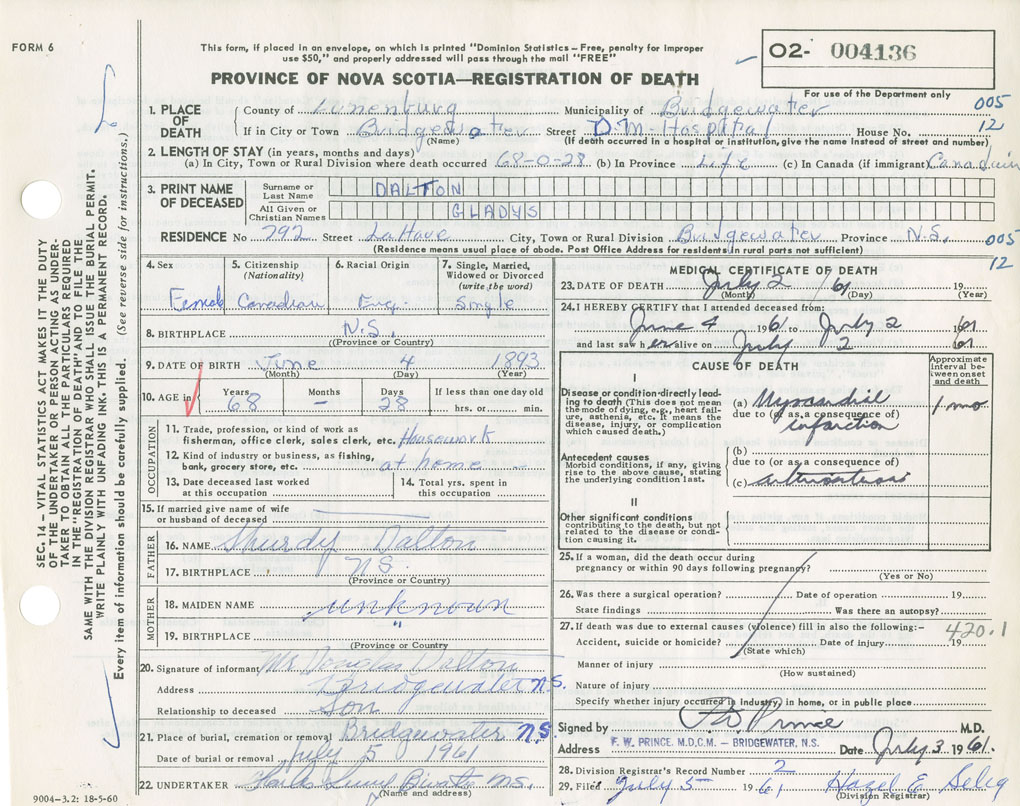 FORM 6
This form, if placed in an envelope, on which is printed "Dominion Statistics – Free, penalty for improper
use $50," and properly addressed will pass through the mail "FREE"
O2- 004136
PROVINCE OF NOVA SCOTIA—REGISTRATION OF DEATH
For use of the Department only
005
12
1. PLACE OF DEATH
County of Lunenburg Municipality of Bridgewater
If in City or Town Bridgewater Street D.M. Hospital House No.
(Name) (If death occurred in a hospital or institution, give the name instead of street and number)
2. LENGTH OF STAY (in years, months and days)
(a) In City, Town or Rural Division where death occurred 68-0-28 (b) In Province Life (c) In Canada (if immigrant) Canadian
3. PRINT NAME OF DECEASED
Surname or Last Name DALTON
All Given or Christian Names GLADYS
RESIDENCE No 792 Street LaHave City, Town or Rural Division Bridgewater Province N.S.
(Residence means usual place of abode. Post Office Address for residents in rural parts not sufficient)
005
12
4. Sex
Female
5. Citizenship
(Nationality)
Canadian
6. Racial Origin
Eng.
7. Single, Married,
Widowed or Divorced
(write the word)
Single
8. BIRTHPLACE N.S.
(Province or County)
9. DATE OF BIRTH June 4 1893
(Month) (Day) (Year)
10. AGE in
Years 68
Months –
Days 28
If less than one day old
hrs. or min.
OCCUPATION
11. Trade, profession, or kind of work as
fisherman, office clerk, sales clerk, etc. Housework
12. Kind of industry or business, as fishing,
bank, grocery store, etc. at home
13. Date deceased last worked
at this occupation
14. Total yrs. spent in
this occupation
15. If married give name of wife
or husband of deceased
FATHER
16. NAME Dalton
17. BIRTHPLACE N.S.
(Province or Country)
MOTHER
18. MAIDEN NAME unknown
19. BIRTHPLACE "
(Province or Country
20. Signature of informant Mr Douglas Dalton
Address Bridgewater N.S.
Relationship to deceased Son
21. Place of burial, cremation or removal Bridgewater N.S
Date of burial or removal July 5 1961
22. UNDERTAKER
(Name and address)
MEDICAL CERTIFICATE OF DEATH
23. DATE OF DEATH July 2 /61 19
(Month) (Day) (Year)
24. I HEREBY CERTIFY that I attended deceased from:
June 4 1961 July 2 1961
and last saw her alive on July 2 1961
CAUSE OF DEATH
Approximate
interval be-
tween onset
and death
I
Disease or condition directly lead-
ing to death (This does not mean
the mode of dying, e.g., heart failure,
asthenia, etc. It means the
disease, injury, or complication
which caused death.)
(a) Myocardial
due to (or as a consequence of
infarction
1 mo
Antecedent causes
Morbid conditions, if any, giving
rise to the above cause, stating
the underlying condition last.
(b)
due to (or as a consequence of)
(c)
II
Other significant conditions
contributing to the death, but not
related to the disease or condi-
tion causing it.
25. If a woman, did the death occur during
pregnancy or within 90 days following pregnancy?
(Yes or No)
26. Was there a surgical operation? Date of operation 19
State findings Was there an autopsy?
27. If death was due to external causes (violence) fill in also the following:–
420.1
Accident, suicide or homicide? Date of injury 19
(State which)
Manner of injury
(How sustained)
Nature of injury
Specify whether injury occurred in industry, in home, or in public place
Signed by F.W. Prince M.D.
Address F. W. PRINCE, M.D.C.M. – BRIDGEWATER, N.S. Date July 3 1961.
28. Division Registrar's Record Number 2
29. Filed July 5 1961 Hazel E Selig
(Division Registrar)
SEC. 14 – VITAL STATISTICS ACT MAKES IT THE DUTY
OF THE UNDERTAKER OR PERSON ACTING AS UNDER-
TAKER TO OBTAIN ALL THE PARTICULARS REQUIRED
IN THE "REGISTRATION OF DEATH" AND TO FILE THE
SAME WITH THE DIVISION REGISTRAR WHO SHALL ISSUE THE BURIAL PERMIT.
WRITE PLAINLY WITH UNFADING INK. THIS IS A PERMANENT RECORD.
Every item of information should be carefully supplied. (See reverse side for instructions.)
9004-3.2: 18-5-60